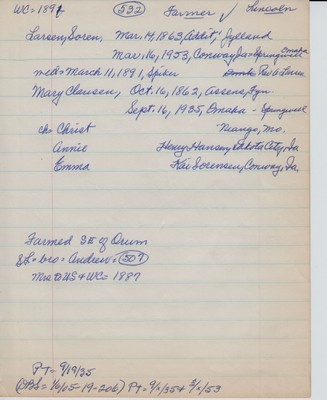 WC=189 532 Farmer ✓ Lincoln
Larsen, Soren, Mar. 14, 1863, Addit, Jylland
Mar. 16, 1953, Conway, Ia = Springwell Omaha
med = March 11, 1891, Spiker Rev A Larsen
Mary Clausen, Oct. 16, 1862, Assens, Fyn
Sept. 16, 1935, Omaha - Springwell
ch = Christ Niangu, Mo.
Annie Henry Hansen, Dakota City, Ia
Emma Kai Sorensen, Conway, Ia.
Farmed SE of Orum
SL = bro = Andrew = 507
Mrs to US & WC = 1887
PT = 9/19/35
(DPS = 46/05-19-206) PT = 9/x/35 & 3/x/53